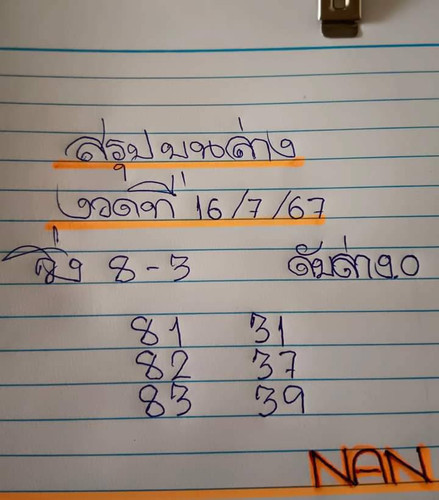 สรุปบนล่าง
งวดที่ 16/7/67
วิ่ง 8-3 ดับล่าง.0
81 31
82 37
83 39
NAN